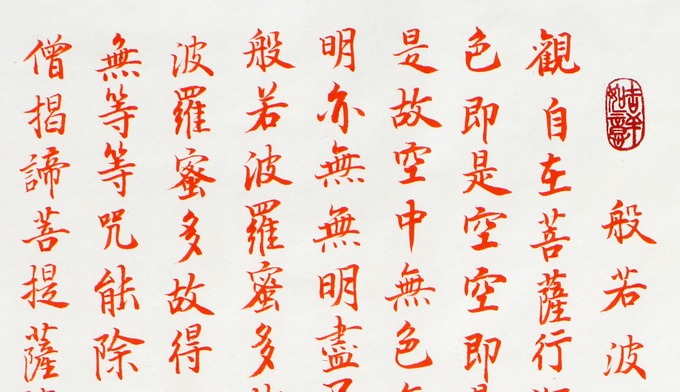 吉祥如意
般若波
觀自在菩薩行
色即是空空即
是故空中無色
明亦無無明盡
般若波羅蜜多
波羅蜜多故得
無等等咒能除
僧揭諦菩提薩